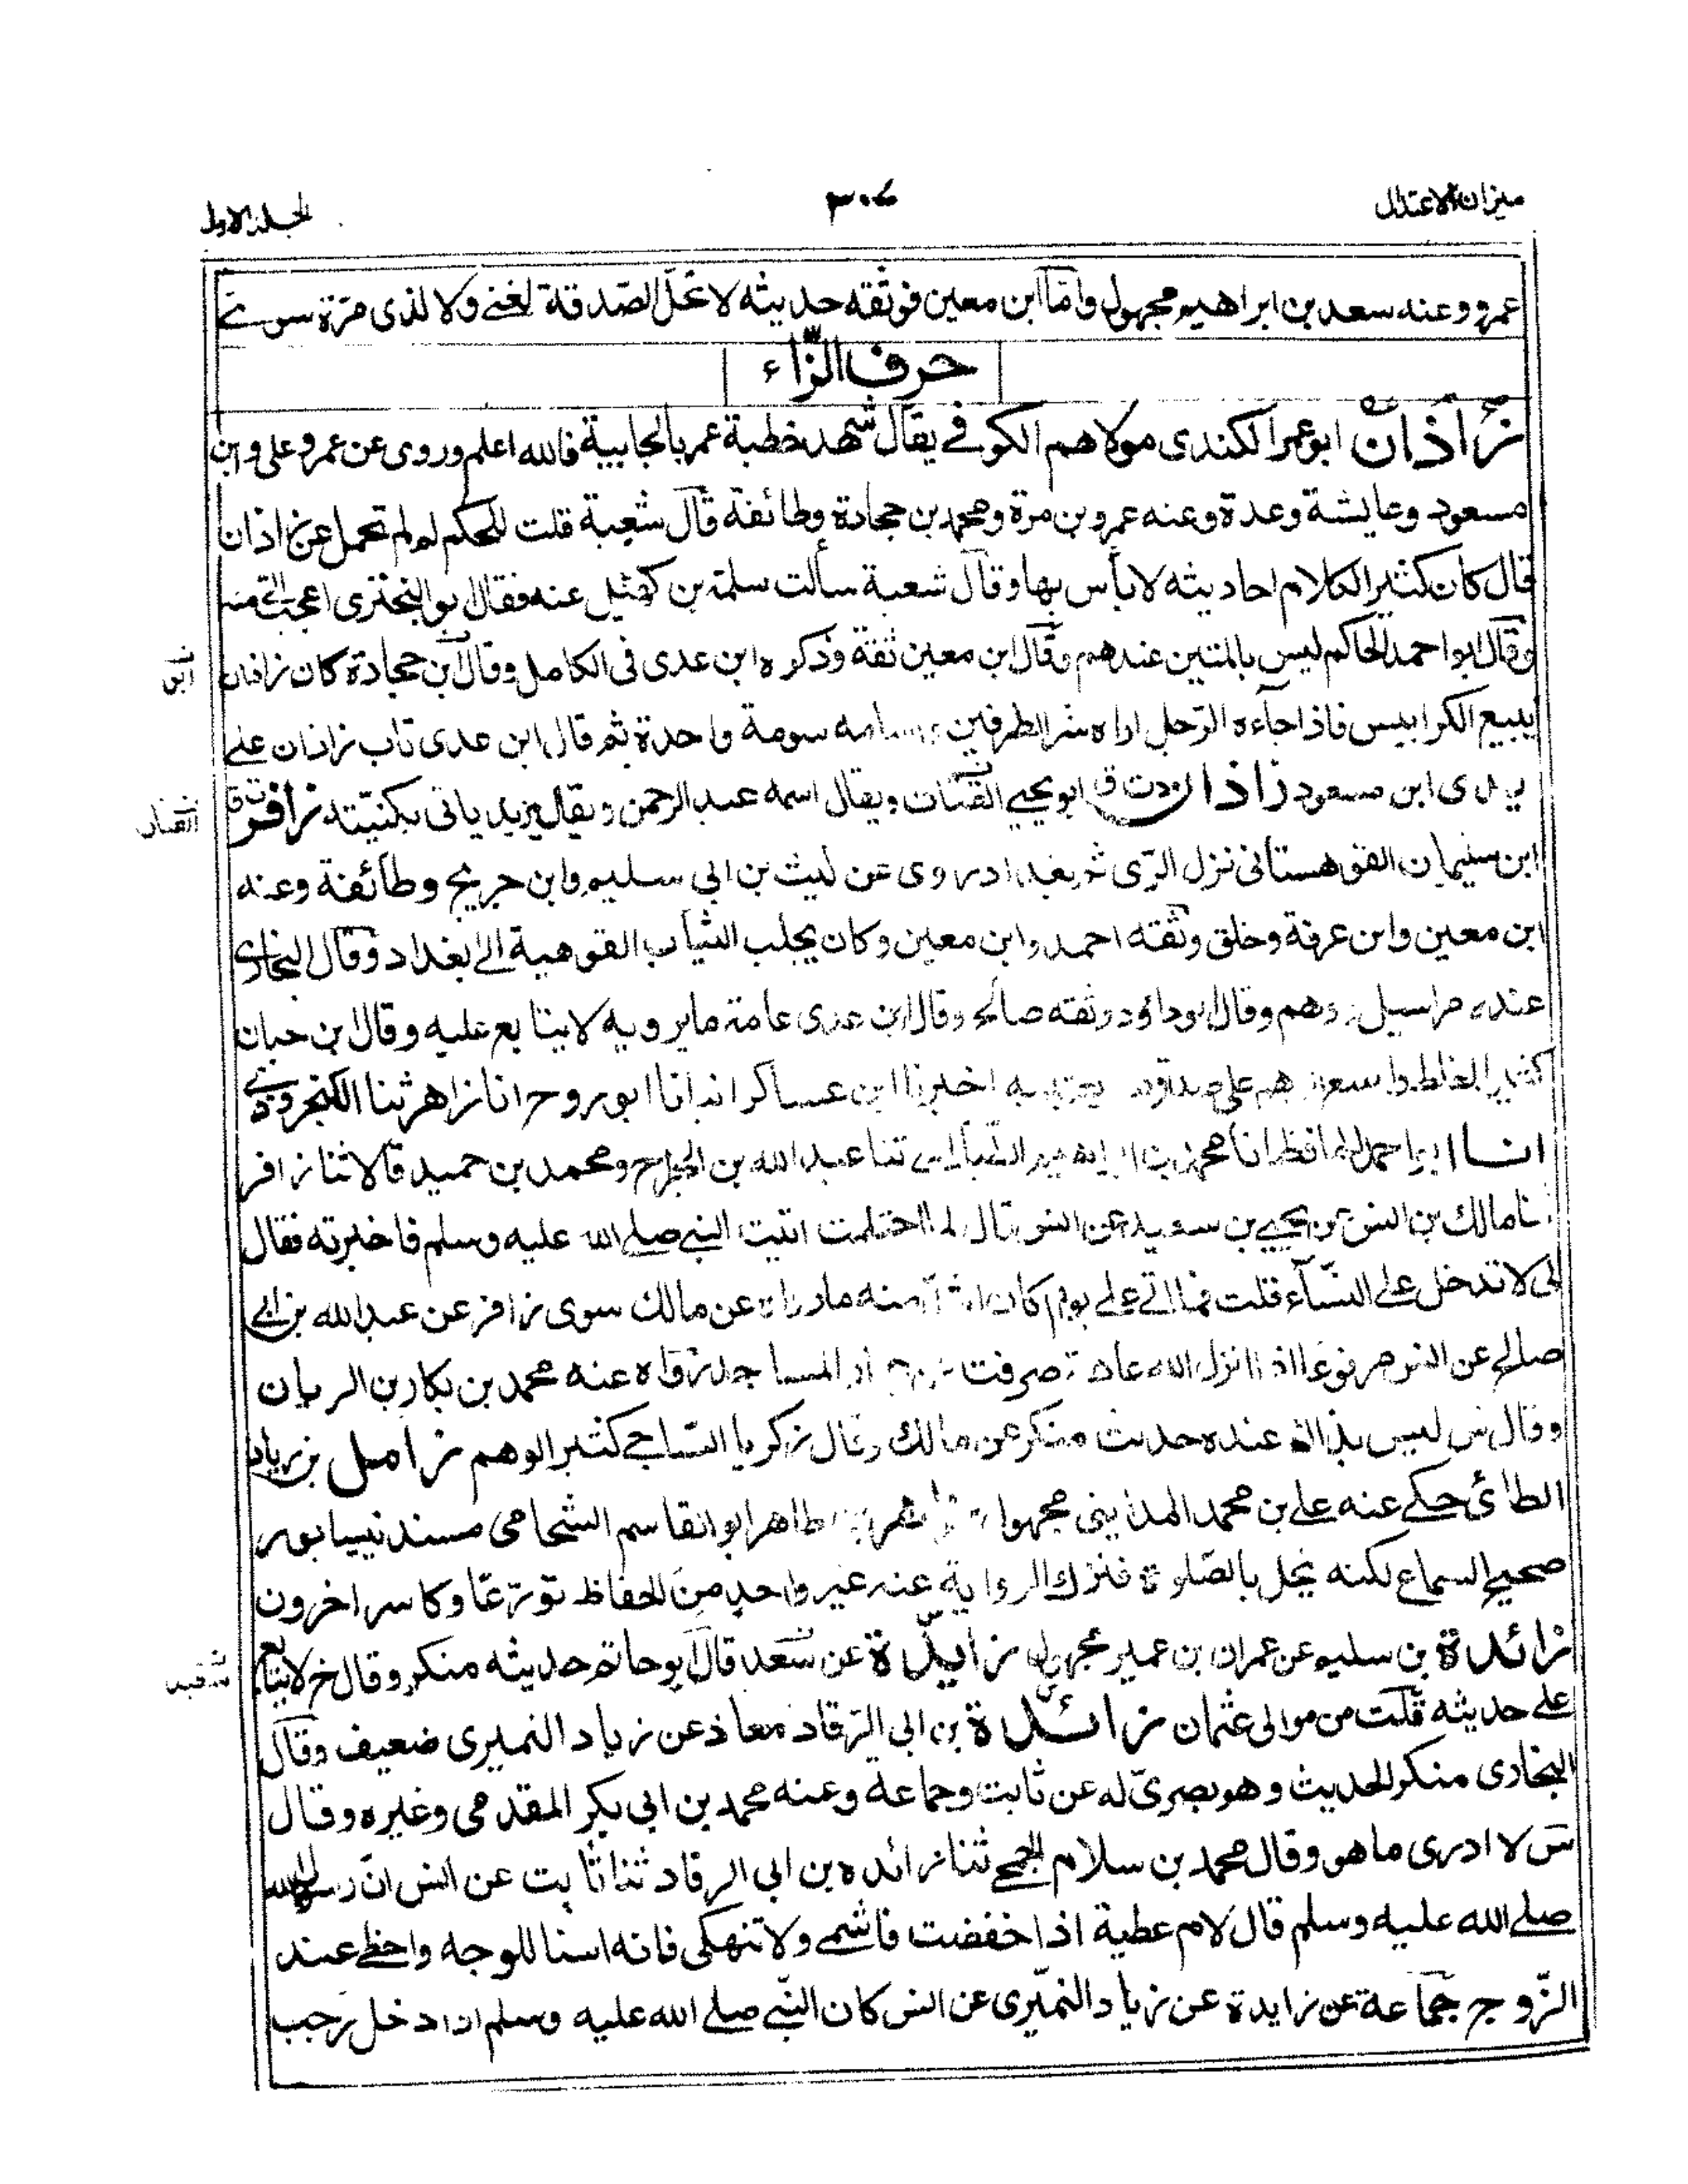 ميزان الاعتدال
٣٠٧
الجلد الاول
عمرو وعنه سعد بن ابراهيم مجهول واما ابن معين فوثقه حديثه لا تحلّ الصّدقة لغنے ولا لذى مرّة سوے
حرف الزّاء
زاذان ابو عمر الكندى مولاهم الكوفے يقال شهد خطبة عمر بالجابية فالله اعلم وروى عن عمر وعلى وابن
مسعود وعايشة وعدة وعنه عمرو بن مرة ومحمد بن حجادة وطائفة قال شعبة قلت للحكم لم لم تحمل عن زاذان
قال كان كثير الكلام احاديثه لا بأس بها وقال شعبة سألت سلمة بن كهيل عنه فقال ابو البخترى اعجب الے منه
وقال ابو احمد الحاكم ليس بالمتين عندهم وقال ابن معين ثقة وذكره ابن عدى فى الكامل وقال ابن حجادة كان زاذان
ابن
يبيع الكرابيس فاذا جاءه الرّجل اراه شر الطرفين وسامه سومة واحدة ثم قال ابن عدى تاب زاذان على
يدى ابن مسعود زاذان دت ق ابو يحيے القتات ويقال اسمه عبد الرحمن ويقال يزيد ياتى بكنيّته زافر ت ق
القتات
ابن سليمان القوهستانى نزل الرّى ثم بغداد روى عن ليث بن ابي سليم وابن جريج وطائفة وعنه
ابن معين وابن عرفة وخلق وثقه احمد وابن معين وكان يجلب الثياب القوهية الے بغداد وقال البخارى
عنده مراسيل ووهم وقال ابو داؤد وثقه صالح وقال ابن عدى عامة ما يرويه لا يتابع عليه وقال ابن حبان
كثير الغلط واسع الوهم على صدق فيه يعتبر به اخبرنا ابن عساكر انبانا ابو روح انا زاهر ثنا الكنجروذے
انا ابو احمد الحافظ انا محمد بن ابراهيم ثنا عبد الله بن الجراح ومحمد بن حميد قالا ثنا زافر
ثنا مالك بن انس عن يحيے بن سعيد عن انس قال لما احتلمت اتيت النبي صلے الله عليه وسلم فاخبرته فقال
لى لا تدخل على النسّاء قلت فما اتے على يوم كان اشدّ منه ما رواه عن مالك سوى زافر عن عبد الله بن ابے
صالح عن انس مرفوعا اذا انزل الله عاهة صرفت عن عمار المساجد رواه عنه محمد بن بكار بن الريان
وقال س ليس بذاك عنده حديث منكر عن مالك وقال زكريا الساجے كثير الوهم زامل بن زياد
الطائى حكے عنه على بن محمد المداينى مجهول زاهر بن طاهر ابو القاسم الشحامى مسند نيسابور
صحيح السماع لكنه يخل بالصّلوة فترك الرواية عنه غير واحد من الحفاظ تورّعا وكاسر اخرون
زائدة بن سليم عن عمران بن عمير مجهول زايدة عن سعد قال ابو حاتم حديثه منكر وقال خ لا يتابع
على حديثه قلت من موالى عثمان زائدة بن ابى الرقاد معاذ عن زياد النميرى ضعيف وقال
البخارى منكر الحديث وهو بصرىّ له عن ثابت وجماعة وعنه محمد بن ابى بكر المقدمى وغيره وقال
س لا ادرى ما هو وقال محمد بن سلام الجمحے ثنا زائده بن ابي الرقاد ثنا ثابت عن انس انّ رسول الله
صلے الله عليه وسلم قال لام عطية اذا خفضت فاشمے ولا تنهكى فانه اسنا للوجه واحظے عند
الزّوج جماعة عن زايدة عن زياد النميّرى عن انس كان النبّي صلے الله عليه وسلم اذا دخل رجب